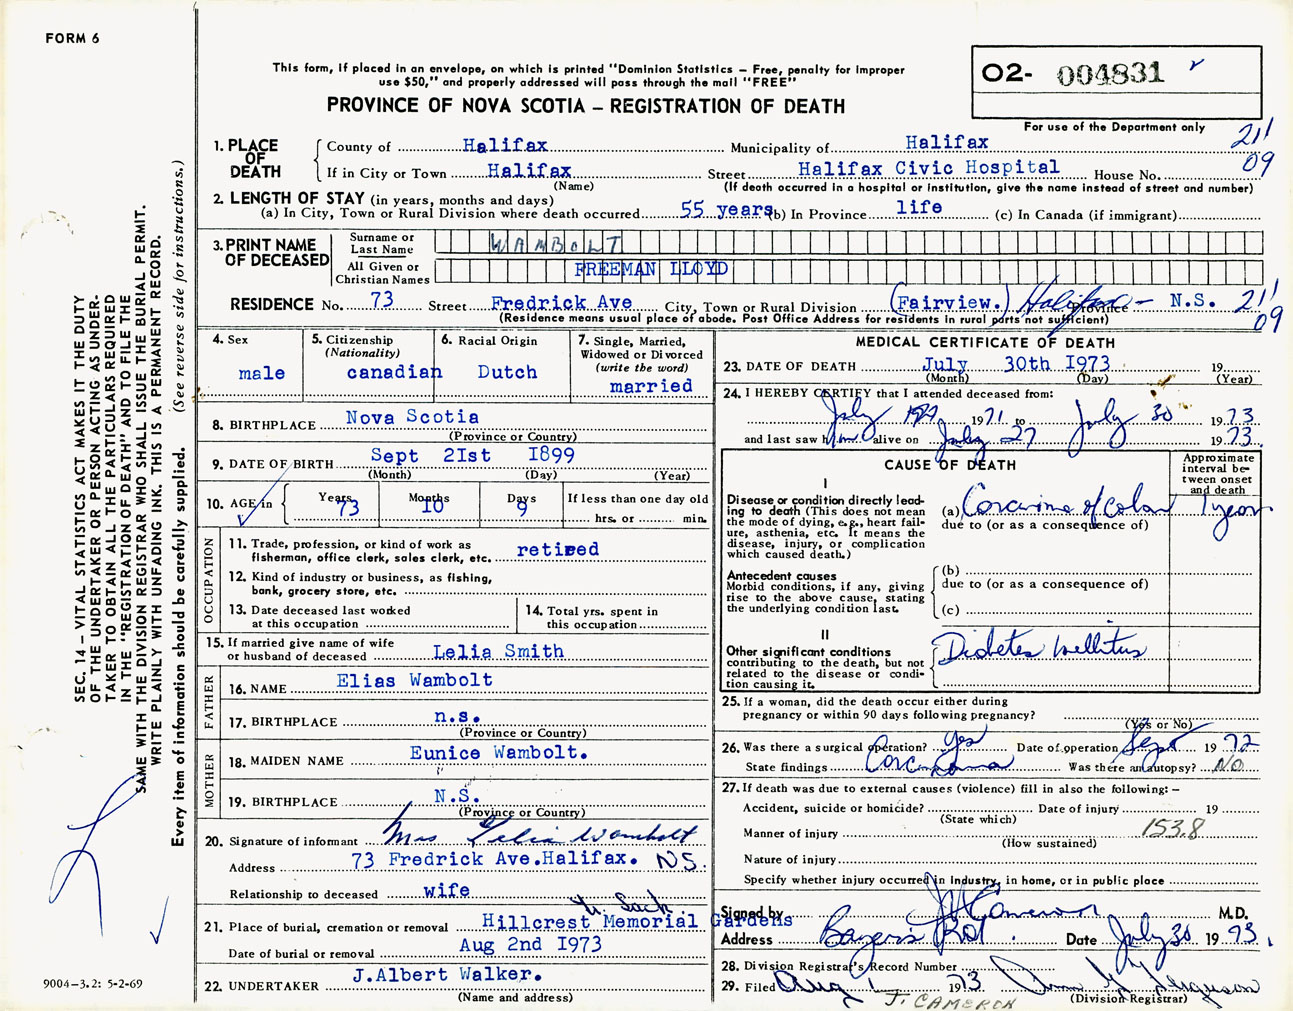 FORM 6
This form, if placed in an envelope, on which is printed "Dominion Statistics – Free, penalty for improper
use $50," and properly addressed will pass through the mail "FREE"
PROVINCE OF NOVA SCOTIA – REGISTRATION OF DEATH
02- 004831
For use of the Department only
211
09
1. PLACE OF DEATH
County of Halifax Municipality of Halifax
If in City or Town Halifax Street Halifax Civic Hospital House No.
(Name) (If death occurred in a hospital or institution, give the name instead of street and number)
2. LENGTH OF STAY (in years, months and days)
(a) In City, Town or Rural Division where death occurred 55 years (b) In Province life (c) In Canada (if immigrant)
3. PRINT NAME OF DECEASED
Surname or Last Name WAMBOLT
All Given or Christian Names FREEMAN LLOYD
RESIDENCE No. 73 Street Fredrick Ave City, Town or Rural Division (Fairview.) Halifax – Province N.S. 211
09
(Residence means usual place of abode. Post Office Address for residents in rural parts not sufficient)
4. Sex male
5. Citizenship (Nationality) canadian
6. Racial Origin Dutch
7. Single, Married, Widowed or Divorced (write the word) married
8. BIRTHPLACE Nova Scotia
(Province or Country)
9. DATE OF BIRTH Sept 2Ist I899
(Month) (Day) (Year)
10. AGE in Years 73 Months I0 Days 9 If less than one day old hrs. or min.
OCCUPATION
11. Trade, profession, or kind of work as fisherman, office clerk, sales clerk, etc. retired
12. Kind of industry or business, as fishing, bank, grocery store, etc.
13. Date deceased last worked at this occupation
14. Total yrs. spent in this occupation
15. If married give name of wife or husband of deceased Lelia Smith
FATHER
16. NAME Elias Wambolt
17. BIRTHPLACE n.s.
(Province or Country)
MOTHER
18. MAIDEN NAME Eunice Wambolt.
19. BIRTHPLACE N.S.
(Province or Country)
20. Signature of informant Mrs Lelia Wambolt
Address 73 Fredrick Ave.Halifax. NS.
Relationship to deceased wife
U. Sack.
21. Place of burial, cremation or removal Hillcrest Memorial Gardens
Date of burial or removal Aug 2nd I973
22. UNDERTAKER J.Albert Walker.
(Name and address)
MEDICAL CERTIFICATE OF DEATH
23. DATE OF DEATH July 30th I973 19
(Month) (Day) (Year)
24. I HEREBY CERTIFY that I attended deceased from:
July 1971 to July 30 1973
and last saw him alive on July 27 1973.
CAUSE OF DEATH
Approximate interval between onset and death
I
Disease or condition directly leading to death (This does not mean the mode of dying, e.g., heart failure, asthenia, etc. It means the disease, injury, or complication which caused death.)
(a) Carcinoma of colon 1 year
due to (or as a consequence of)
Antecedent causes
Morbid conditions, if any, giving rise to the above cause, stating the underlying condition last.
(b)
due to (or as a consequence of)
(c)
II
Other significant conditions contributing to the death, but not related to the disease or condition causing it.
Diabetes Mellitus
25. If a woman, did the death occur either during pregnancy or within 90 days following pregnancy?
(Yes or No)
26. Was there a surgical operation? Yes Date of operation Sept 1972
State findings Carcinoma Was there an autopsy? No
27. If death was due to external causes (violence) fill in also the following: –
Accident, suicide or homicide? Date of injury 19
(State which)
Manner of injury 153.8
(How sustained)
Nature of injury
Specify whether injury occurred in industry, in home, or in public place
Signed by J Cameron M.D.
Address Bayers Rd. Date July 30 1973.
28. Division Registrar's Record Number
29. Filed Aug 1 1973 Ferguson
(Division Registrar)
J. CAMERON
SEC. 14 – VITAL STATISTICS ACT MAKES IT THE DUTY
OF THE UNDERTAKER OR PERSON ACTING AS UNDER-
TAKER TO OBTAIN ALL THE PARTICULARS REQUIRED
IN THE "REGISTRATION OF DEATH" AND TO FILE THE
SAME WITH THE DIVISION REGISTRAR WHO SHALL ISSUE THE BURIAL PERMIT.
WRITE PLAINLY WITH UNFADING INK. THIS IS A PERMANENT RECORD.
Every item of information should be carefully supplied. (See reverse side for instructions.)
9004-3.2: 5-2-69